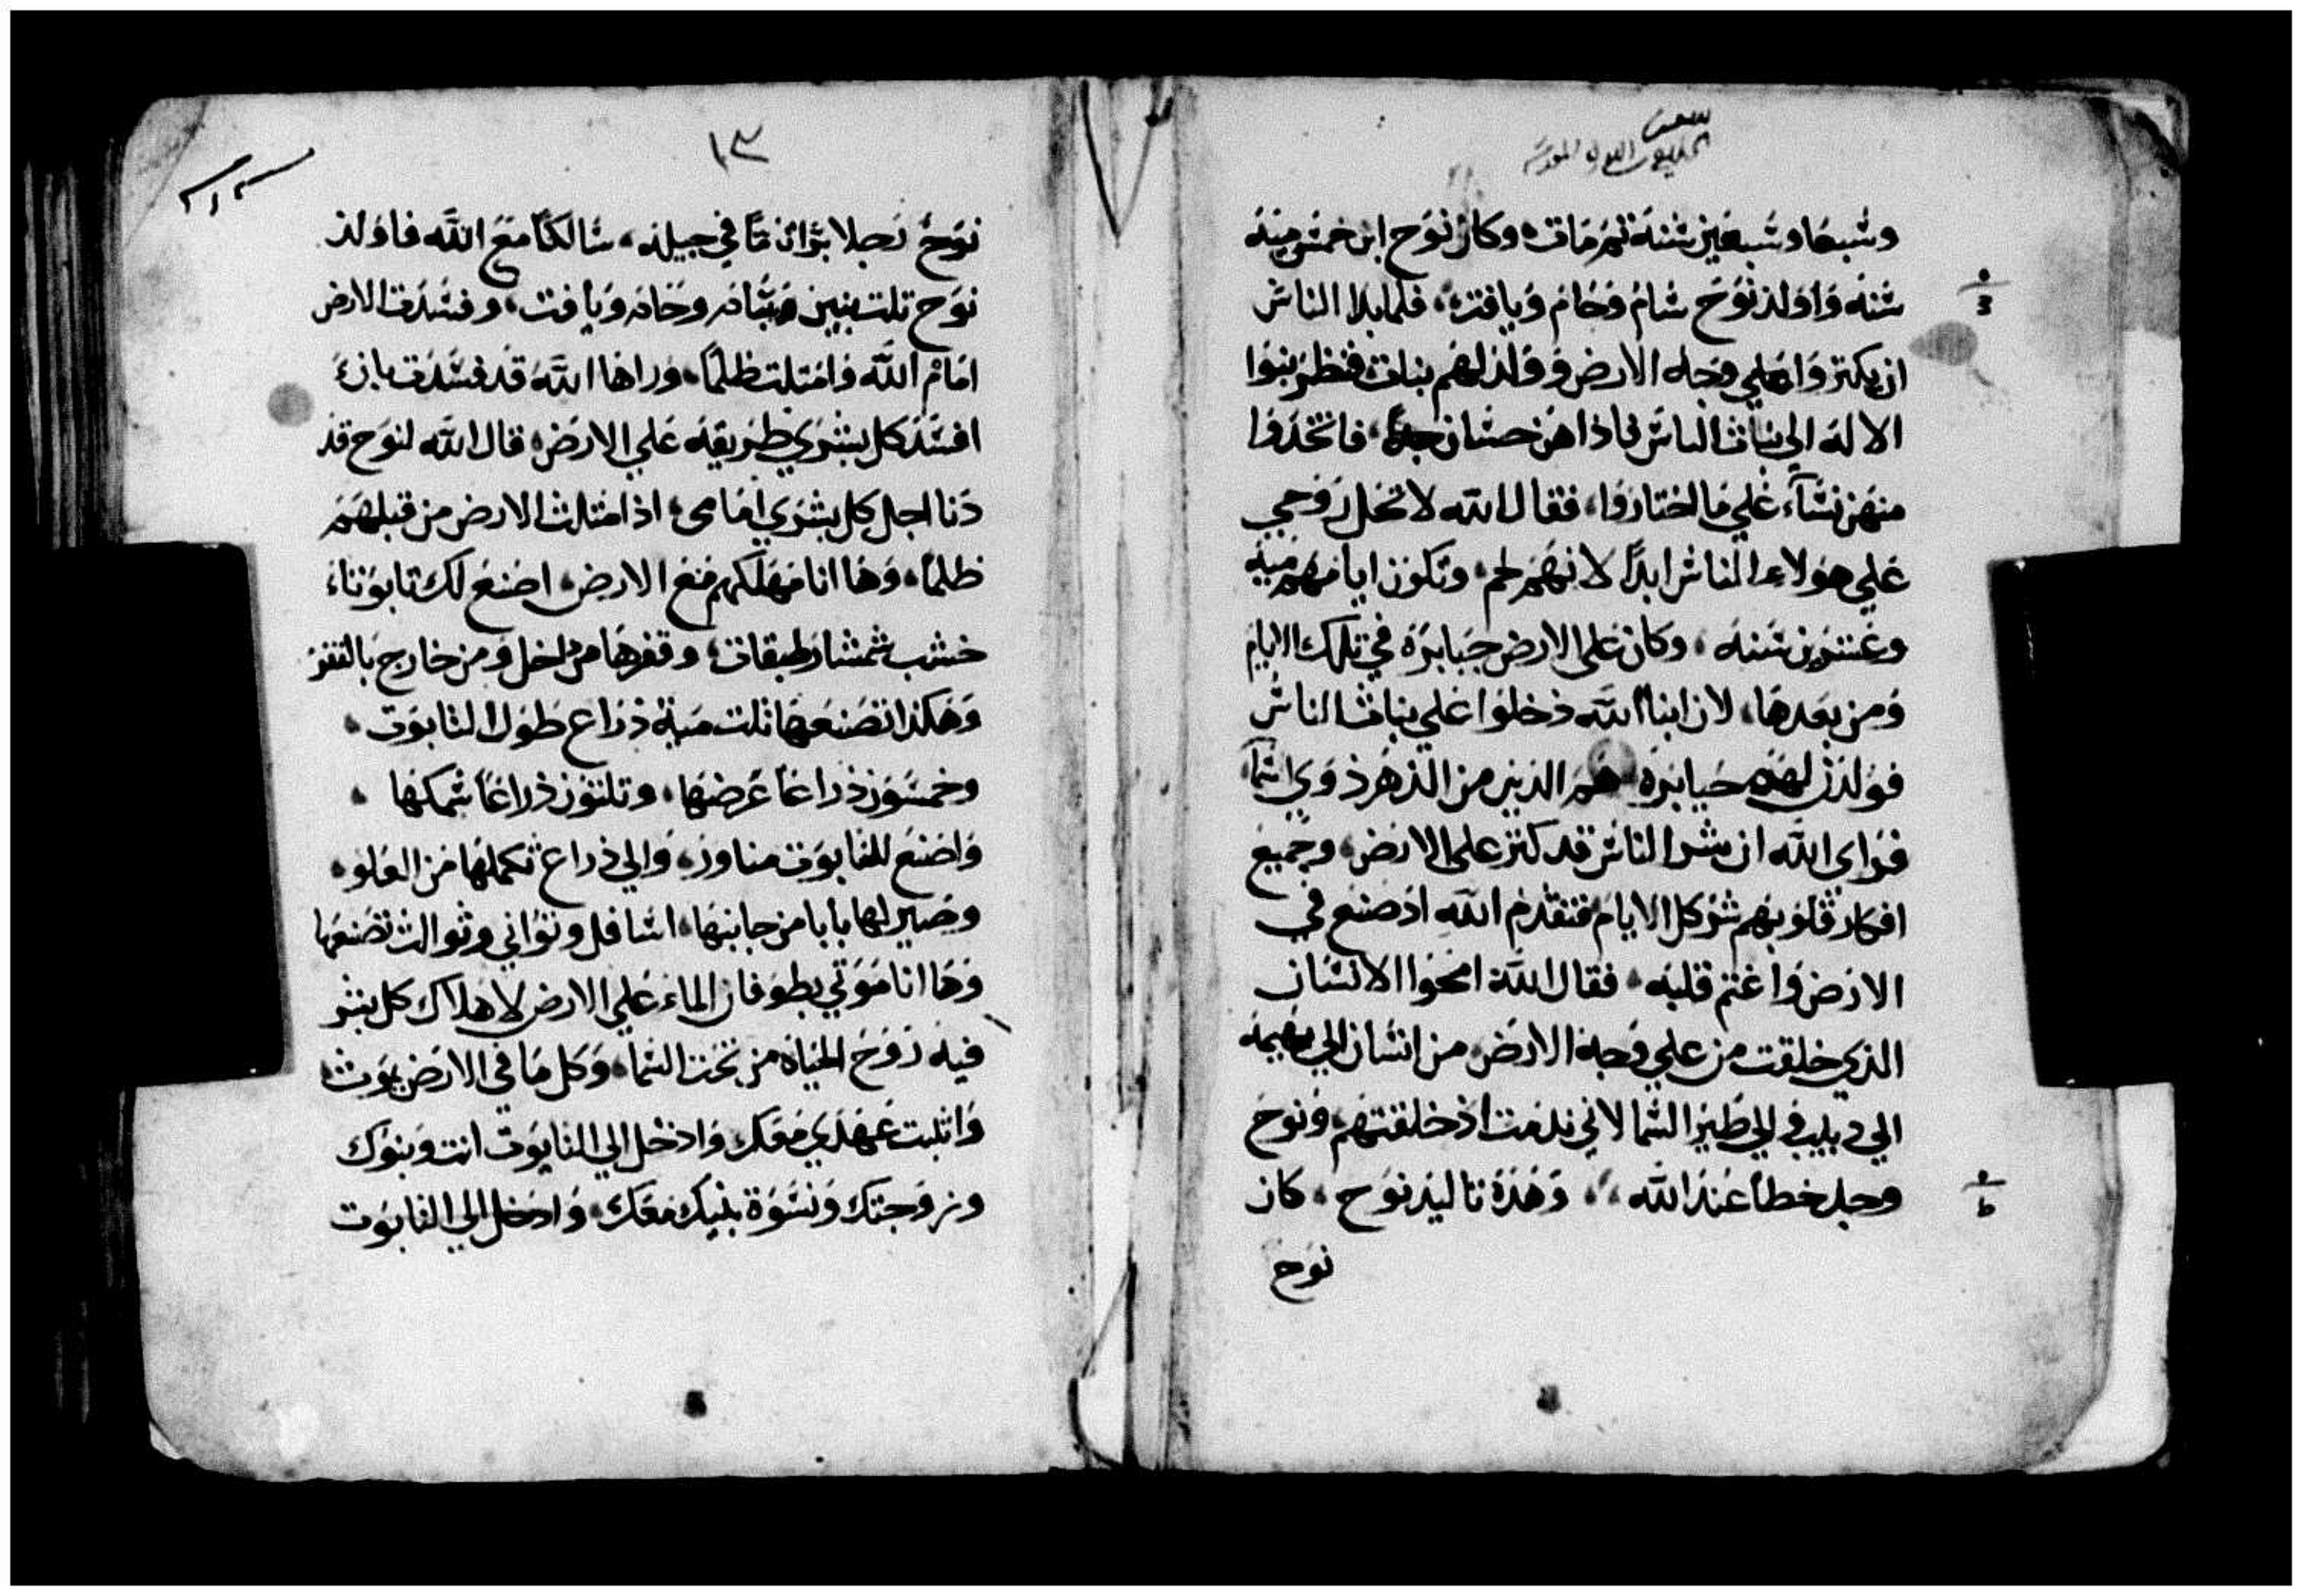 وشبعا وشبعين شنة ثم مات، وكان نوح ابن خمش مية
شنه واولد نوح شام وحام ويافت، فلما بدا الناش
ان يكتروا علي وجه الارض وولد لهم بنات فنظر بنوا
الاله الي بنات الناش فاذا هن حشان جدا، فاتخدوا
منهن نشآء علي ما اختاروا، فقال الله لا تحل روحي
علي هولاء الناش ابدا لانهم لحم، وتكون ايامهم مية
وعشرون شنه، وكان على الارض جبابرة في تلك الايام
ومن بعدها، لان ابنا الله دخلوا علي بنات الناش
فولدن لهم جبابره هم الدين من الدهر دوي اشما
فراى الله ان شر الناش قد كتر على الارض، وجميع
افكار قلوبهم شر كل الايام فتقدم الله اذ صنع في
الارض واغتم قلبه، فقال الله امحوا الانشان
الذي خلقت من علي وجه الارض من انشان الي بهيمه
الي دبيب والي طير الشما لاني ندمت اذ خلقتهم، ونوح
وجد خطا عند الله، وهذه تاليد نوح، كان
نوح
١٣
نوح رجلا برا تاما في جيله، شالكا مع الله فاولد
نوح تلت بنين شام وحام ويافت، وفشدت الارض
امام الله وامتلت ظلما، وراها الله قد فشدت بان
افشد كل بشري طريقه علي الارض، قال الله لنوح قد
دنا اجل كل بشري امامى، اذ امتلت الارض من قبلهم
ظلما، وها انا مهلكهم مع الارض، اصنع لك تابوتا
خشب شمشار طبقات، وقفرها من داخل ومن خارج بالقفر
وهكذا تصنعها تلت مية ذراع طول التابوت،
وخمشون ذراعا عرضها، وتلتون ذراعا شمكها،
واصنع للتابوت مناور، والي ذراع تكملها من العلو،
وصير لها بابا من جانبها، اشافل وتواني وتوالت تصنعها
وها انا موتي بطوفان الماء علي الارض لاهلاك كل بشر
فيه روح الحياه من تحت الشما، وكل ما في الارض يموت
واتبت عهدي معك وادخل الي التابوت انت وبنوك
وزوجتك ونشوة بنيك معك، وادخل الي التابوت